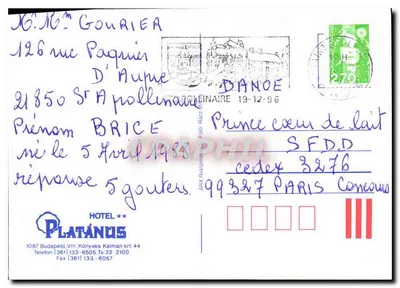 M. Mme GOURIER
126 rue Paquier
D'Aupre
21850 St Apollinaire
Prénom BRICE
né le 5 Avril 1988
réponse 5 gouters
2,70
LINAIRE 19-12-96
DANOE
Prince cœur de lait
SFDD
cedex 3276
99327 PARIS Concours
HOTEL **
PLATÁNUS
1087 Budapest, VIII., Könyves Kálmán krt. 44
Telefon: (361) 133-6505 Tx: 22 2100
Fax: (361) 133-6057